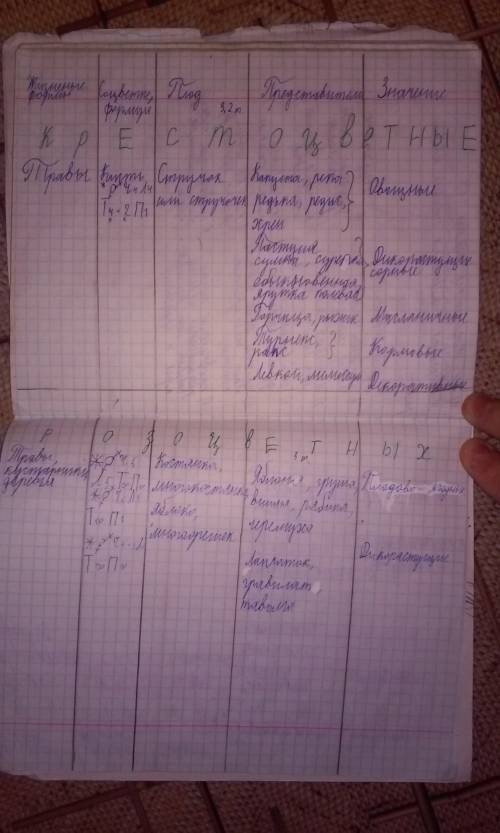 Жизненные Соцветие, Плод Представители Значение
формы формула
К Р Е С Т О Ц В Е Т Н Ы Е
Травы Кисть Стручок Капуста, репа
или стручочек редька, редис, Овощные
Т4+2 П1 хрен
Пастушья
сумка, сурепка, Дикорастущие
обыкновенная, сорные
ярутка полевая
Горчица, рыжик Масличные
Турнепс, Кормовые
рапс
Левкой, Декоративные
Р О З О Ц В Е Т Н Ы Х
Травы, Костянка, Яблоня, груша, Плодово-ягодн
кустарники, многокостянка, вишня, рябина,
деревья яблоко, черёмуха
Т∞ П1 многоорешек
Дикорастущие
Т∞ П∞ Лапчатка,
гравилат